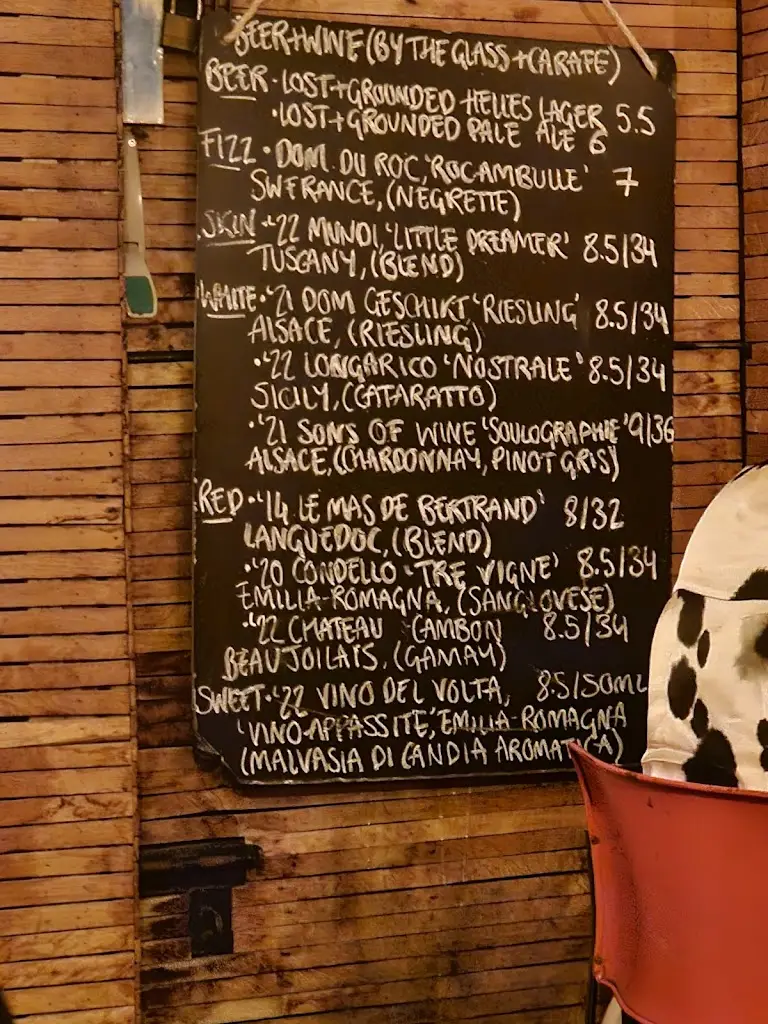 BEER+WINE (BY THE GLASS + CARAFE)
BEER • LOST+GROUNDED HELLES LAGER 5.5
• LOST+GROUNDED PALE ALE 6
FIZZ • DOM. DU ROC, 'ROCAMBULLE' 7
SW FRANCE, (NEGRETTE)
SKIN • '22 MUNDI, 'LITTLE DREAMER' 8.5/34
TUSCANY, (BLEND)
WHITE • '21 DOM GESCHIKT 'RIESLING' 8.5/34
ALSACE, (RIESLING)
• '22 LONGARICO 'NOSTRALE' 8.5/34
SICILY, (CATARATTO)
• '21 SONS OF WINE 'SOULOGRAPHIE' 9/36
ALSACE, (CHARDONNAY, PINOT GRIS)
RED • '14 LE MAS DE BERTRAND' 8/32
LANGUEDOC, (BLEND)
• '20 CONDELLO 'TRE VIGNE' 8.5/34
EMILIA-ROMAGNA, (SANGIOVESE)
• '22 CHATEAU CAMBON 8.5/34
BEAUJOILAIS, (GAMAY)
SWEET • '22 VINO DEL VOLTA, 8.5/50ML
'VINO APPASSITE', EMILIA-ROMAGNA
(MALVASIA DI CANDIA AROMATICA)